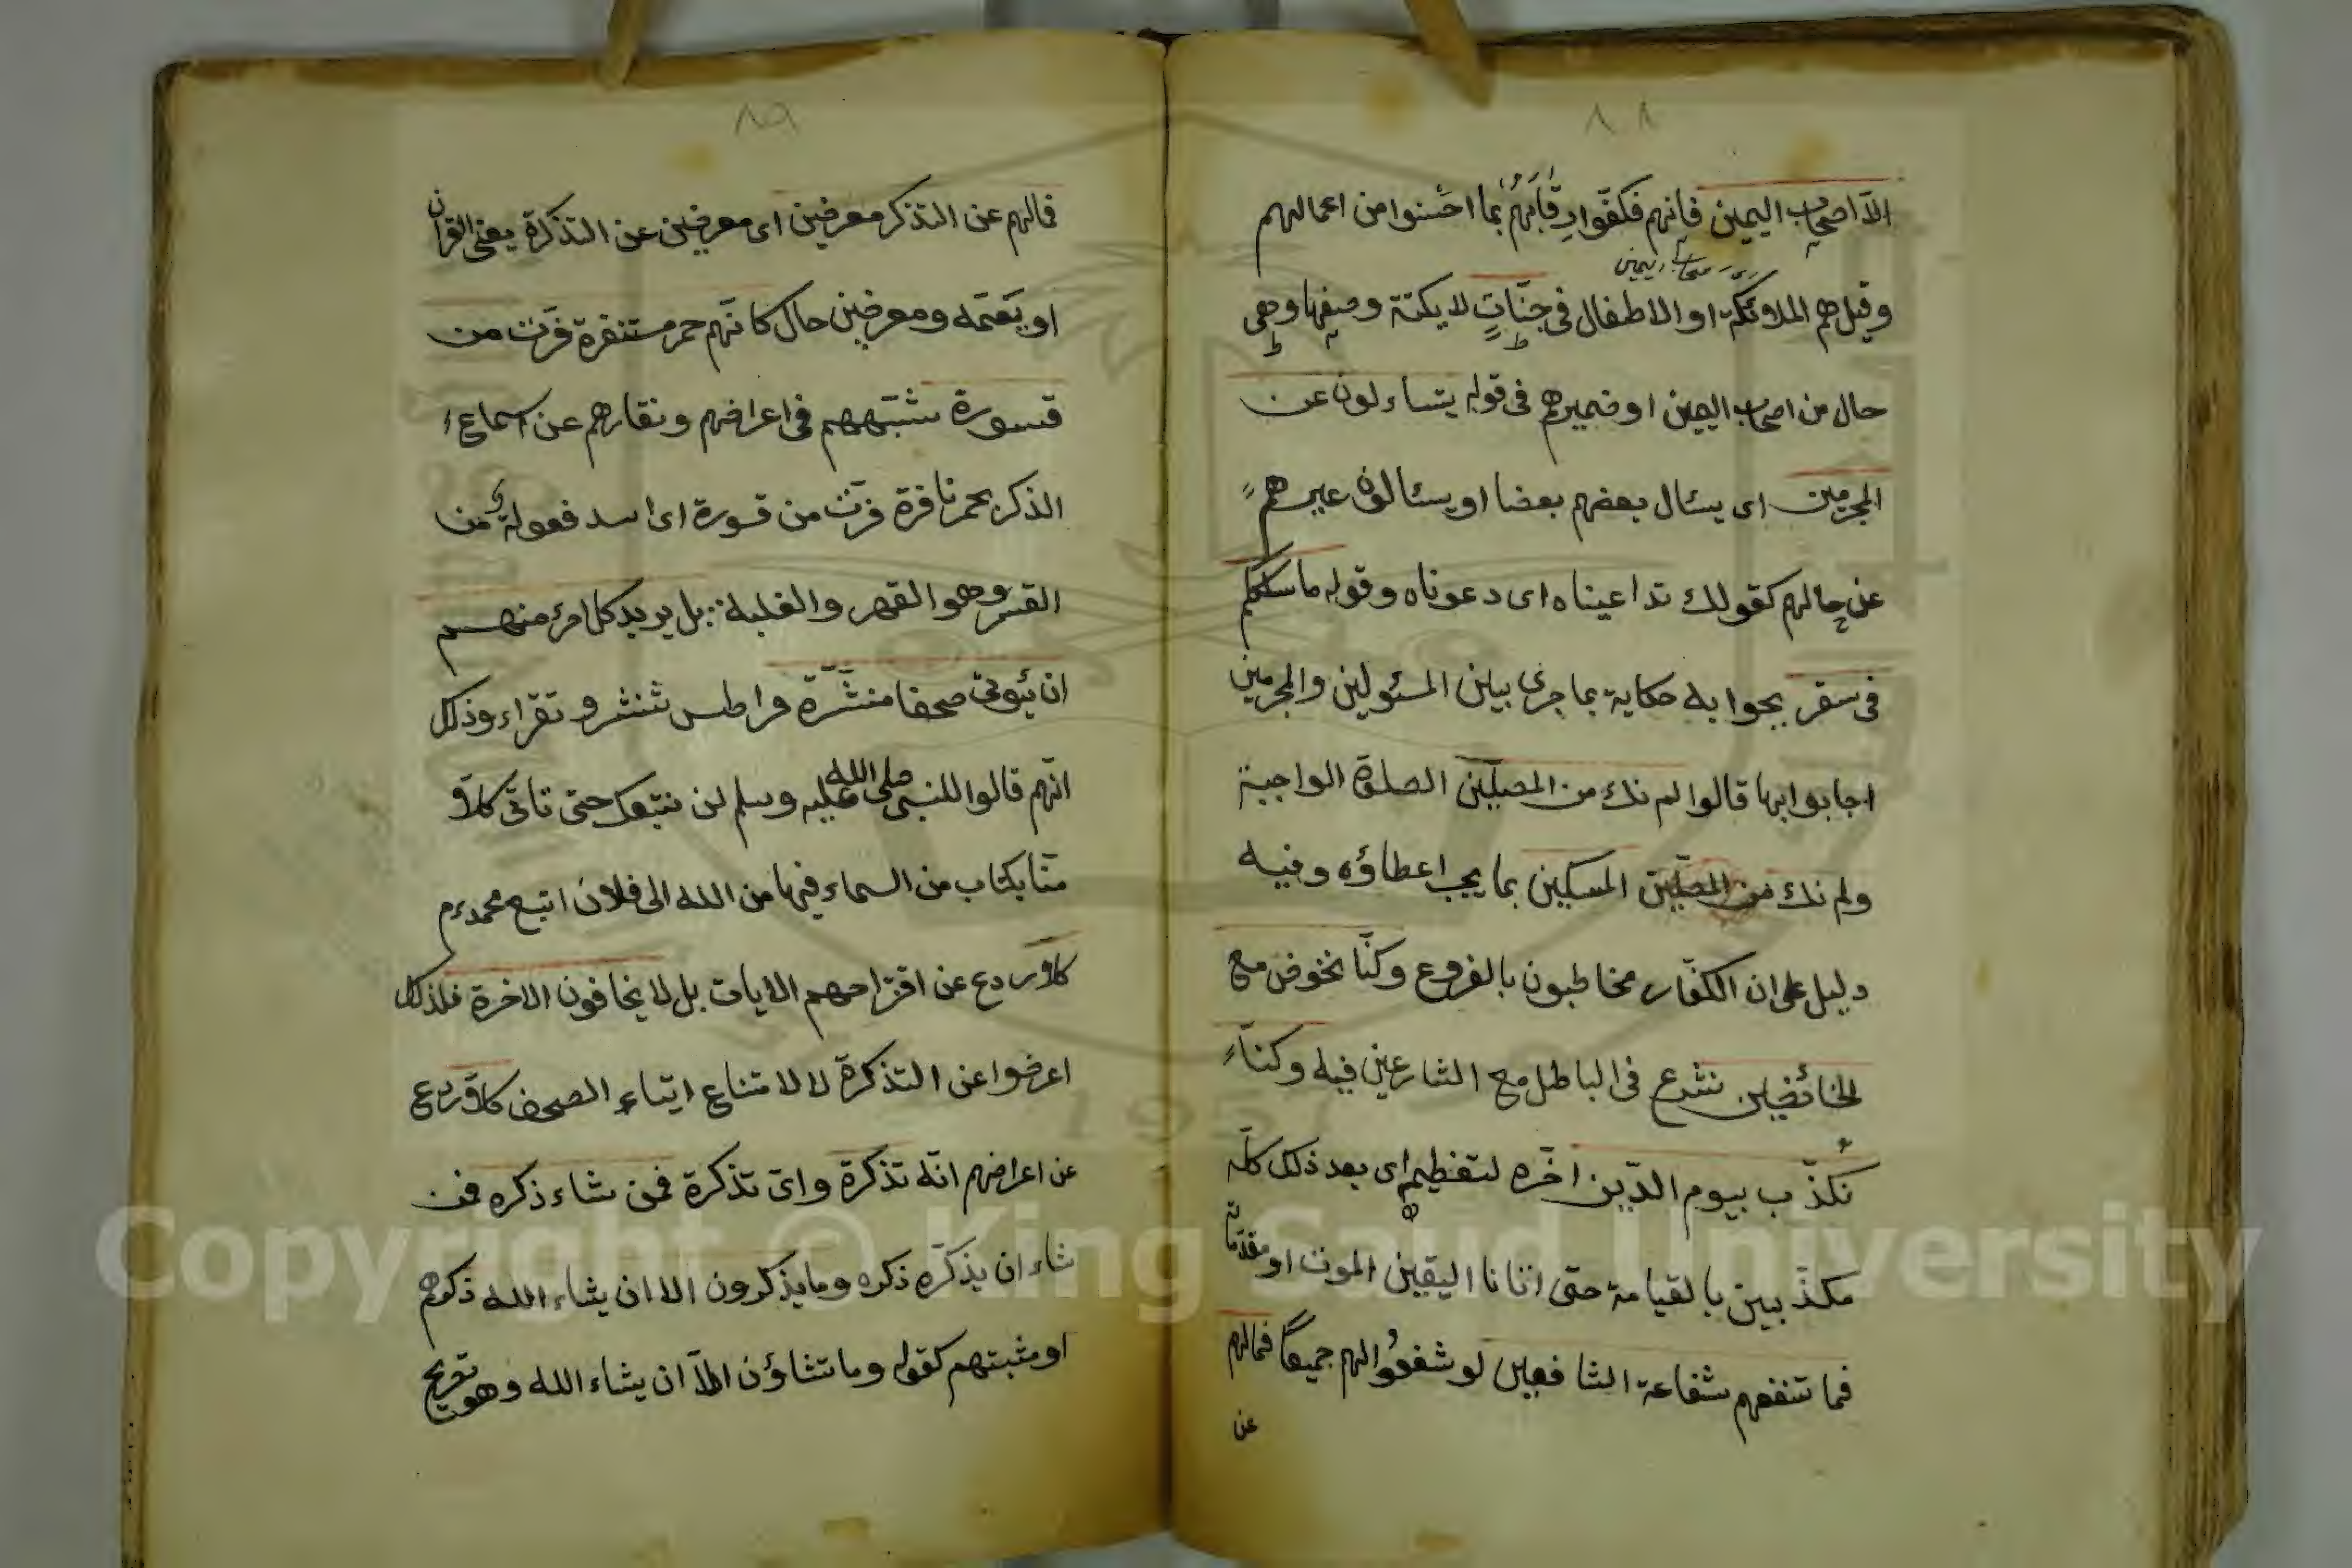 ٨٨
الّا اصحاب اليمين فانهم فكّفوا رقابهم بما احسنوا من اعمالهم
وقيل هم الملائكة او الاطفال فى جنّاتٍ لا يكتنه وصفها وهى
حال من اصحاب اليمين او ضميرهم فى قوله يتساءلون عن
المجرمين اى يسئال بعضهم بعضا او يسئالون غيرهم
عن حالهم كقولك تداعيناه اى دعوناه وقوله ما سلككم
فى سقر بجوابه حكاية بما جرى بيين المسئولين والمجرمين
اجابوا بها قالوا لم نك من المصلّين الصلوة الواجبة
ولم نك من المصلّين المسكين بما يجب اعطاؤه وفيه
دليل على ان الكفّار مخاطبون بالفروع وكنّا نخوض مع
الخائضين نشرع فى الباطل مع الشارعين فيه وكنا
نكذّب بيوم الدّين اخّره لتعظيم اى بعد ذلك كلّه
مكذّبين بالقيامة حتى اتانا اليقين الموت او مقدّماته
فما تنفعهم شفاعة الشافعين لو شفعوا لهم جميعاً فمالهم
عن
٨٩
فمالهم عن التذكر معرضين اى معرضين عن التذكرة يعنى القرآن
او يعمّه ومعرضين حال كانّهم حمر مستنفرة فرّت من
قسورة شبّههم فى اعراضهم ونفارهم عن اسماع ا
الذكر بحمر نافرة فرّت من قسورة اى اسد فعولة من
القسر وهو القهر والغلبة بل يريد كل امرئ منهم
ان يّؤتى صحفا منشّرّة قراطس تنشر وتقراء وذلك
انّهم قالوا للنبى صلى الله عليه وسلم لن نتبعك حتى تاتى كلاّ
منّا بكتاب من السماء فيها من الله الى فلان اتبع محمد عم
كلاّ ردع عن اقتراحهم الايات بل لا يخافون الاخرة فلذلك
اعرضوا عن التذكرة لا لامتناع ايتاء الصحف كلاّ ردع
عن اعراضهم انّه تذكرة واىّ تذكرة فمن شاء ذكره فمن
شاء ان يذكّره ذكره وما يذكرون الا ان يشاء الله ذكرهم
او مشيتهم كقوله وما تشاؤن الّا ان يشاء الله وهو تصريح
Copyright © King Saud University